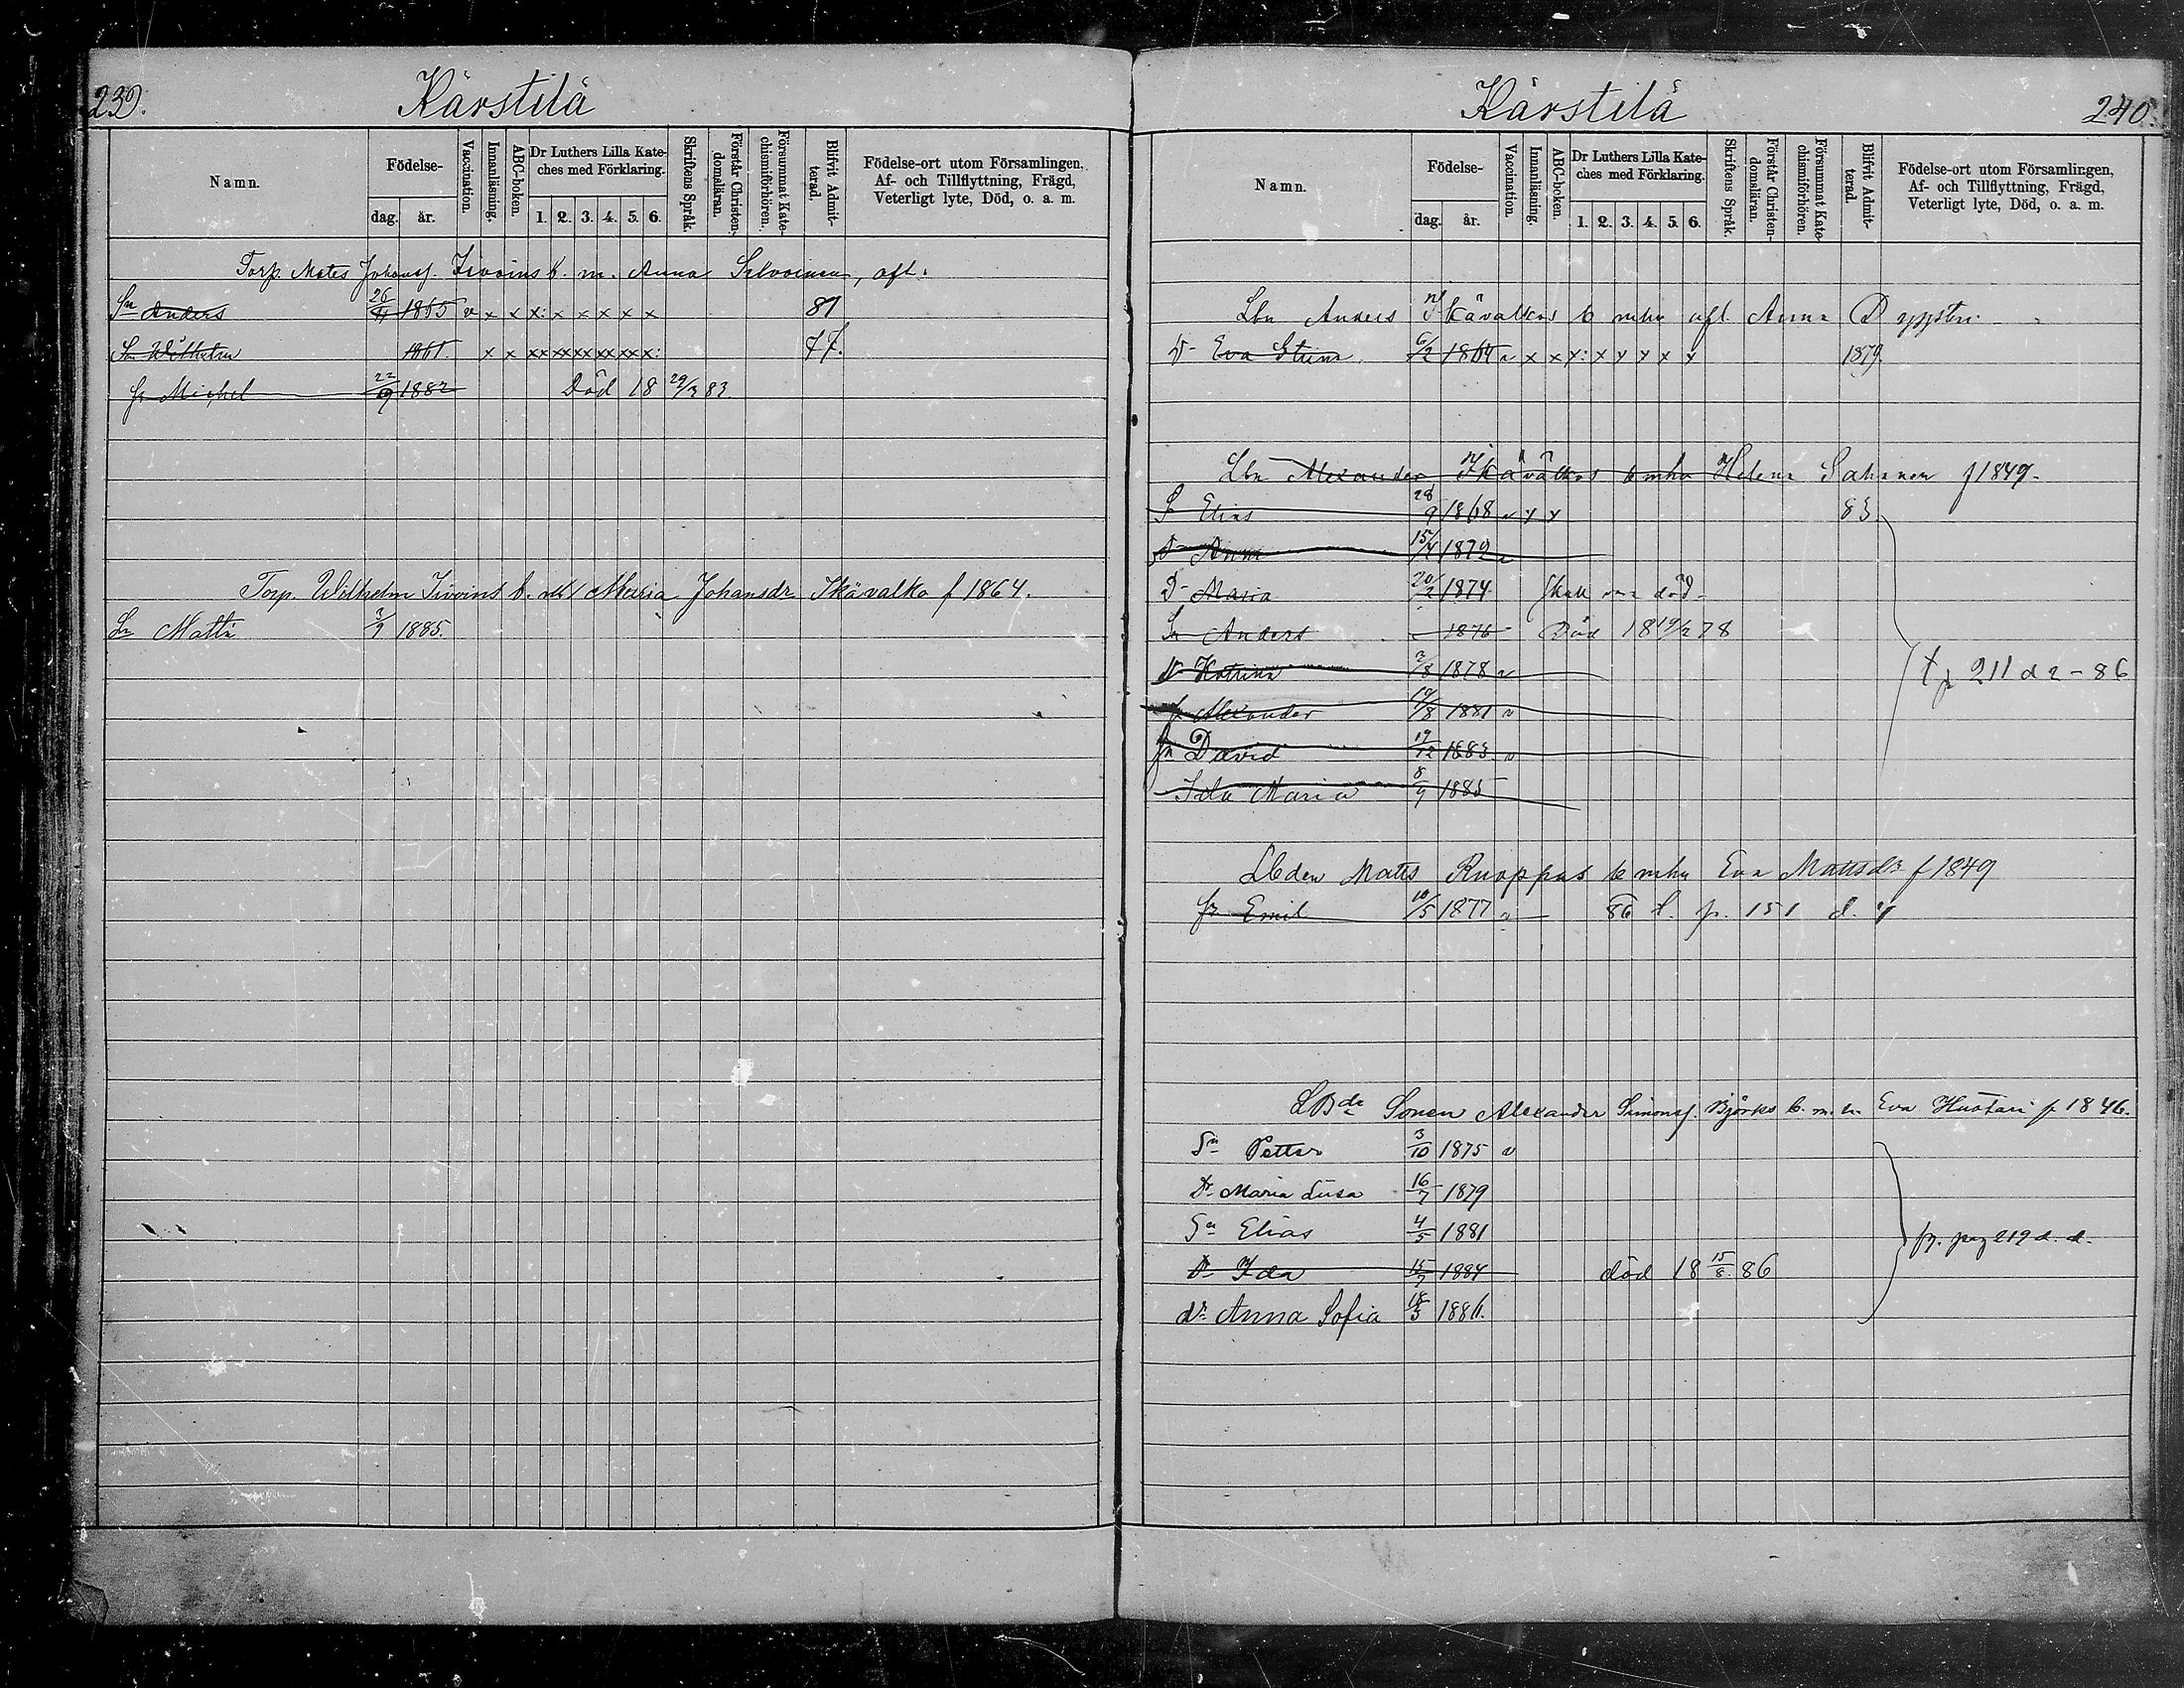 239.
Kärstilä
Namn.
Födelse-
dag.
år.
Vaccination.
Innanläsning.
ABC-boken.
Dr Luthers Lilla Kate-
ches med Förklaring.
1. 2. 3. 4. 5. 6.
Skriftens Språk.
Förstår Christen-
domsläran.
Försummat Kate-
chismiförhören.
Blifvit Admit-
terad.
Födelse-ort utom Församlingen,
Af- och Tillflyttning, Frägd,
Veterligt lyte, Död, o. a. m.
Torp. Mats Johansf. b. m. Anna, afl.
Sn Anders 26/11 1865 v x x x: x x x x x 81
Sn Wilhelm 1861. x x xx xx xx xx xx x: 77.
fr Michel 22/9 1882 Död 18 29/3 83
Torp. Wilhelm b. m/ Maria Johansdr Ikävalko f 1864.
Sn Matti 3/9 1885.
Kärstilä
240.
Namn.
Födelse-
dag.
år.
Vaccination.
Innanläsning.
ABC-boken.
Dr Luthers Lilla Kate-
ches med Förklaring.
1. 2. 3. 4. 5. 6.
Skriftens Språk.
Förstår Christen-
domsläran.
Försummat Kate-
chismiförhören.
Blifvit Admit-
terad.
Födelse-ort utom Församlingen,
Af- och Tillflyttning, Frägd,
Veterligt lyte, Död, o. a. m.
Lbn Anders Ikävalkos b mhu afl. Anna
Dr Eva Stina 6/2 1864 v x x x: x x x x x 1879
Lbn Alexander Ikävalkos b mhu Helena Sahanen f 1849.
S Elias 28/9 1868 v x x 83
Dr Anna 15/4 1872 v
Dr Maria 20/2 1874 Skall vara död
Sn Anders 1876 Död 18 19/2 78
Dr Katrina 2/8 1878 v
fr Alexander 19/8 1881 v
fn David 19/12 1883 v
Ida Maria 8/9 1885
t p 211 d 2 - 86
Lbden Matts Ruoppas b mhu Eva Mattsdr f 1849
fr Emil 10/5 1877 v 86 t. p. 151 d.
LBde Sonen Alexander Simonsf. Björks b. m. h. Eva Hustari f 1846.
Sn Petter 3/10 1875 v
Dr Maria Lisa 16/7 1879
Sn Elias 4/5 1881
Dr Ida 15/7 1884 död 18 15/8. 86
dr Anna Sofia 18/5 1886.
fr. pag 219 d. d.